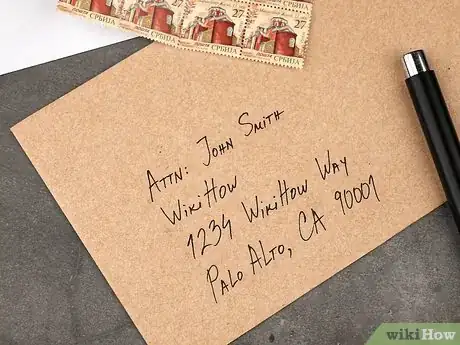 27
СРБИЈА
27
СРБИЈА
27
СРБИЈА
ATTN: JOHN SMITH
WIKIHOW
1234 WIKIHOW WAY
PALO ALTO, CA 90001
wikiHow